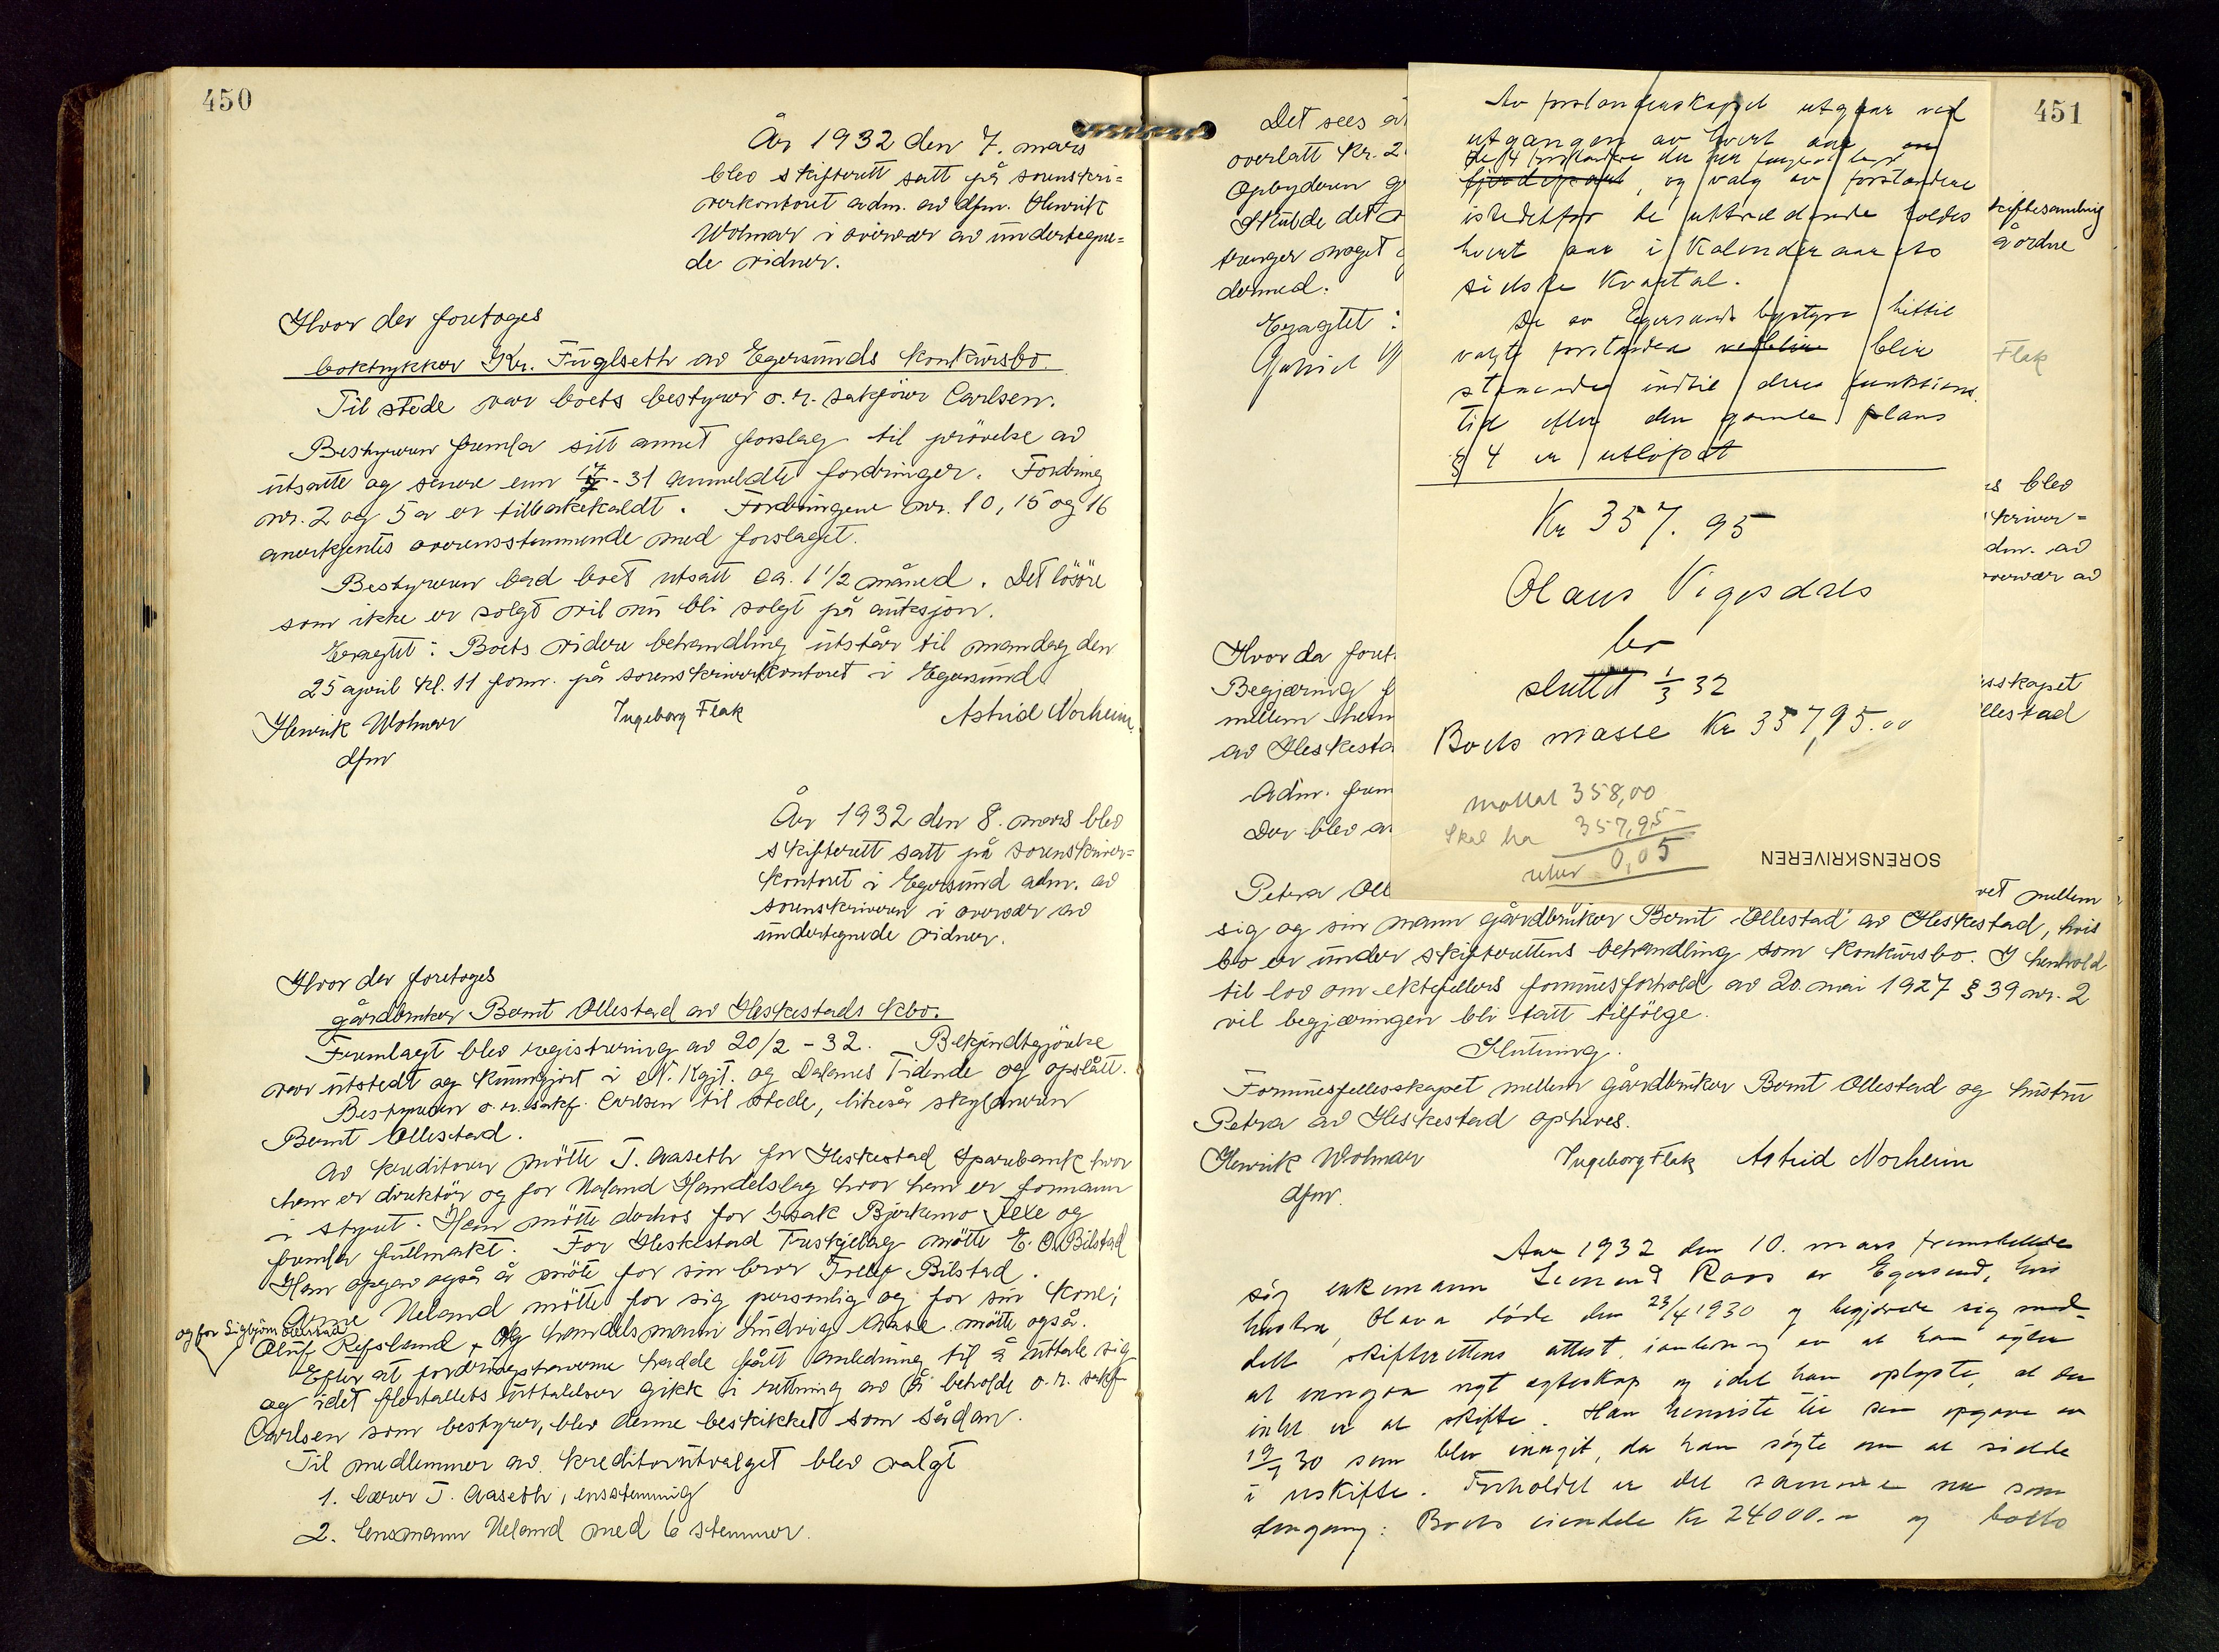 450
År 1932 den 7. mars
blev skifterett satt på sorenskri=
verkontoret adm. av dfm. Henrik
Wolmar i overvær av undertegne=
de vidner.
Hvor der foretoges
boktrykker Kr. Fuglseth av Egersunds konkursbo.
Til stede var boets bestyrer o.r. sakfører Carlsen.
Bestyreren fremla sitt annet forslag til prövelse av
utsatte og senere enn - 31 anmeldte fordringer. Fordring
nr. 2 og 5a er tilbakekaldt. Fordringene nr. 10, 15 og 16
anerkjentes overensstemmende med forslaget.
Bestyreren bad boet utsatt ca. 1 1/2 måned. Det lösöre
som ikke er solgt vil nu bli solgt på auksjon.
Eragtet: Boets videre behandling utstår til mandag den
25 april kl. 11 form. på sorenskriverkontoret i Egersund.
Henrik Wolmar Ingeborg Flak Astrid Norheim
dfm
År 1932 den 8. mars blev
skifterett satt på sorenskriver=
kontoret i Egersund adm. av
sorenskriveren i overvær av
undertegnede vidner.
Hvor der foretoges
gårdbruker Bernt Ollestad av Heskestads kbo.
Fremlagt blev registrering av 20/2 - 32. Bekjendtgjörelse
var utstedt og kunngjort i N. Kgjt. og Dalanes Tidende og opslått.
Bestyreren o.r. sakf. Carlsen til stede, likeså skyldneren
Bernt Ollestad.
Av kreditorer mötte T. Aaseth for Heskestad Sparebank hvor
han er direktör og for Ueland Handelslag hvor han er formann
i styret. Han mötte derhos for Isak Bjerkemo Tele og
fremla fullmakt. For Heskestad Treskjelag mötte E. O. Bilstad
Han opgav også å möte for sin bror Tollef Bilstad.
Arne Ueland mötte for sig personlig og for sin kone;
og for Sigbjörn
Oluf Refsland. Og handelsmann Ludvig Aase mötte også.
Efter at fordringshaverne hadde fått anledning til å uttale sig
og idet flertallets uttalelser gikk i retning av å beholde o.r. sakf
Carlsen som bestyrer, blev denne beskikket som sådan.
Til medlemmer av kreditorutvalget blev valgt
1. lærer T. Aaseth, enstemmig
2. lensmann Ueland med 6 stemmer.
451
Det sees
overlatt kr. 2
Opbyderen
Skulde det
trenger noget
dermed.
Eragtet:
Gabriel
skiftesamling
gårdne
Flak
Av forstanderskapet utgaar ved
utgangen av hvert aar
de 4 forstandere der har fungeret
, og valg av forstandere
istedetfor de uttrædende holdes
hvert aar i kalenderaarets
sidste kvartal.
De av Egersunds bystyre hittil
valgte forstandere blir
staaende indtil deres funktions
tid efter den gamle plans
§ 4 er utlöpet
Kr 357.95
Olaus Vigesdals
bo
sluttet 1/3 32
Boets masse Kr 35795.00
mottat 358,00
Skal ha 357,95
retur 0,05
SORENSKRIVEREN
blev
skriver=
adm. av
overvær av
Hvor da
Begjæring
mellem
av Heskesta
Adm. frem
Der blev
Petra Oll
mellem
sig og sin mann gårdbruker Bernt Ollestad av Heskestad, hvis
bo er under skifterettens behandling som konkursbo. I henhold
til lov om ektefellers formuesforhold av 20. mai 1927 § 39 nr. 2
vil begjæringen bli tatt tilfölge.
Slutning.
Formuesfellesskapet mellem gårdbruker Bernt Ollestad og hustru
Petra av Heskestad opheves.
Henrik Wolmar Ingeborg Flak Astrid Norheim
dfm.
Aar 1932 den 10. mars fremstillede
sig enkemann Roos av Egersund, hvis
hustru, Olava döde den 23/4 1930 og begjærede sig med-
delt skifterettens attest i anledning av at han agter
at inngaa nyt egteskap og idet han oplyste, at der
intet er at skifte. Han henviste til sin opgave av
30 som blev inngit, da han sögte om at sidde
i uskifte. Forholdet er det samme nu som
dengang: Boets eiendele kr 24000.- og boets